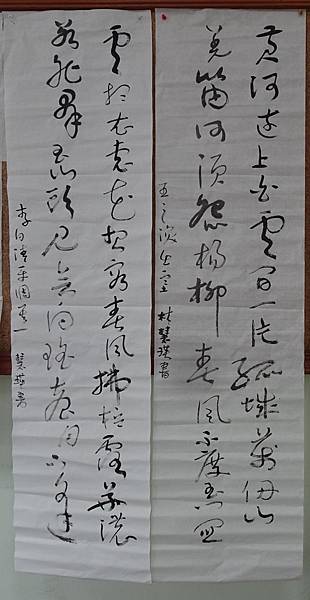 黃河遠上白雲間一片孤城萬仞山
羌笛何須怨楊柳春風不度玉
王之渙出塞 林慧書
雲想衣裳花想容春風拂檻露華濃
若非群玉山頭見會向瑤臺月下逢
李白清平調其一 慧書